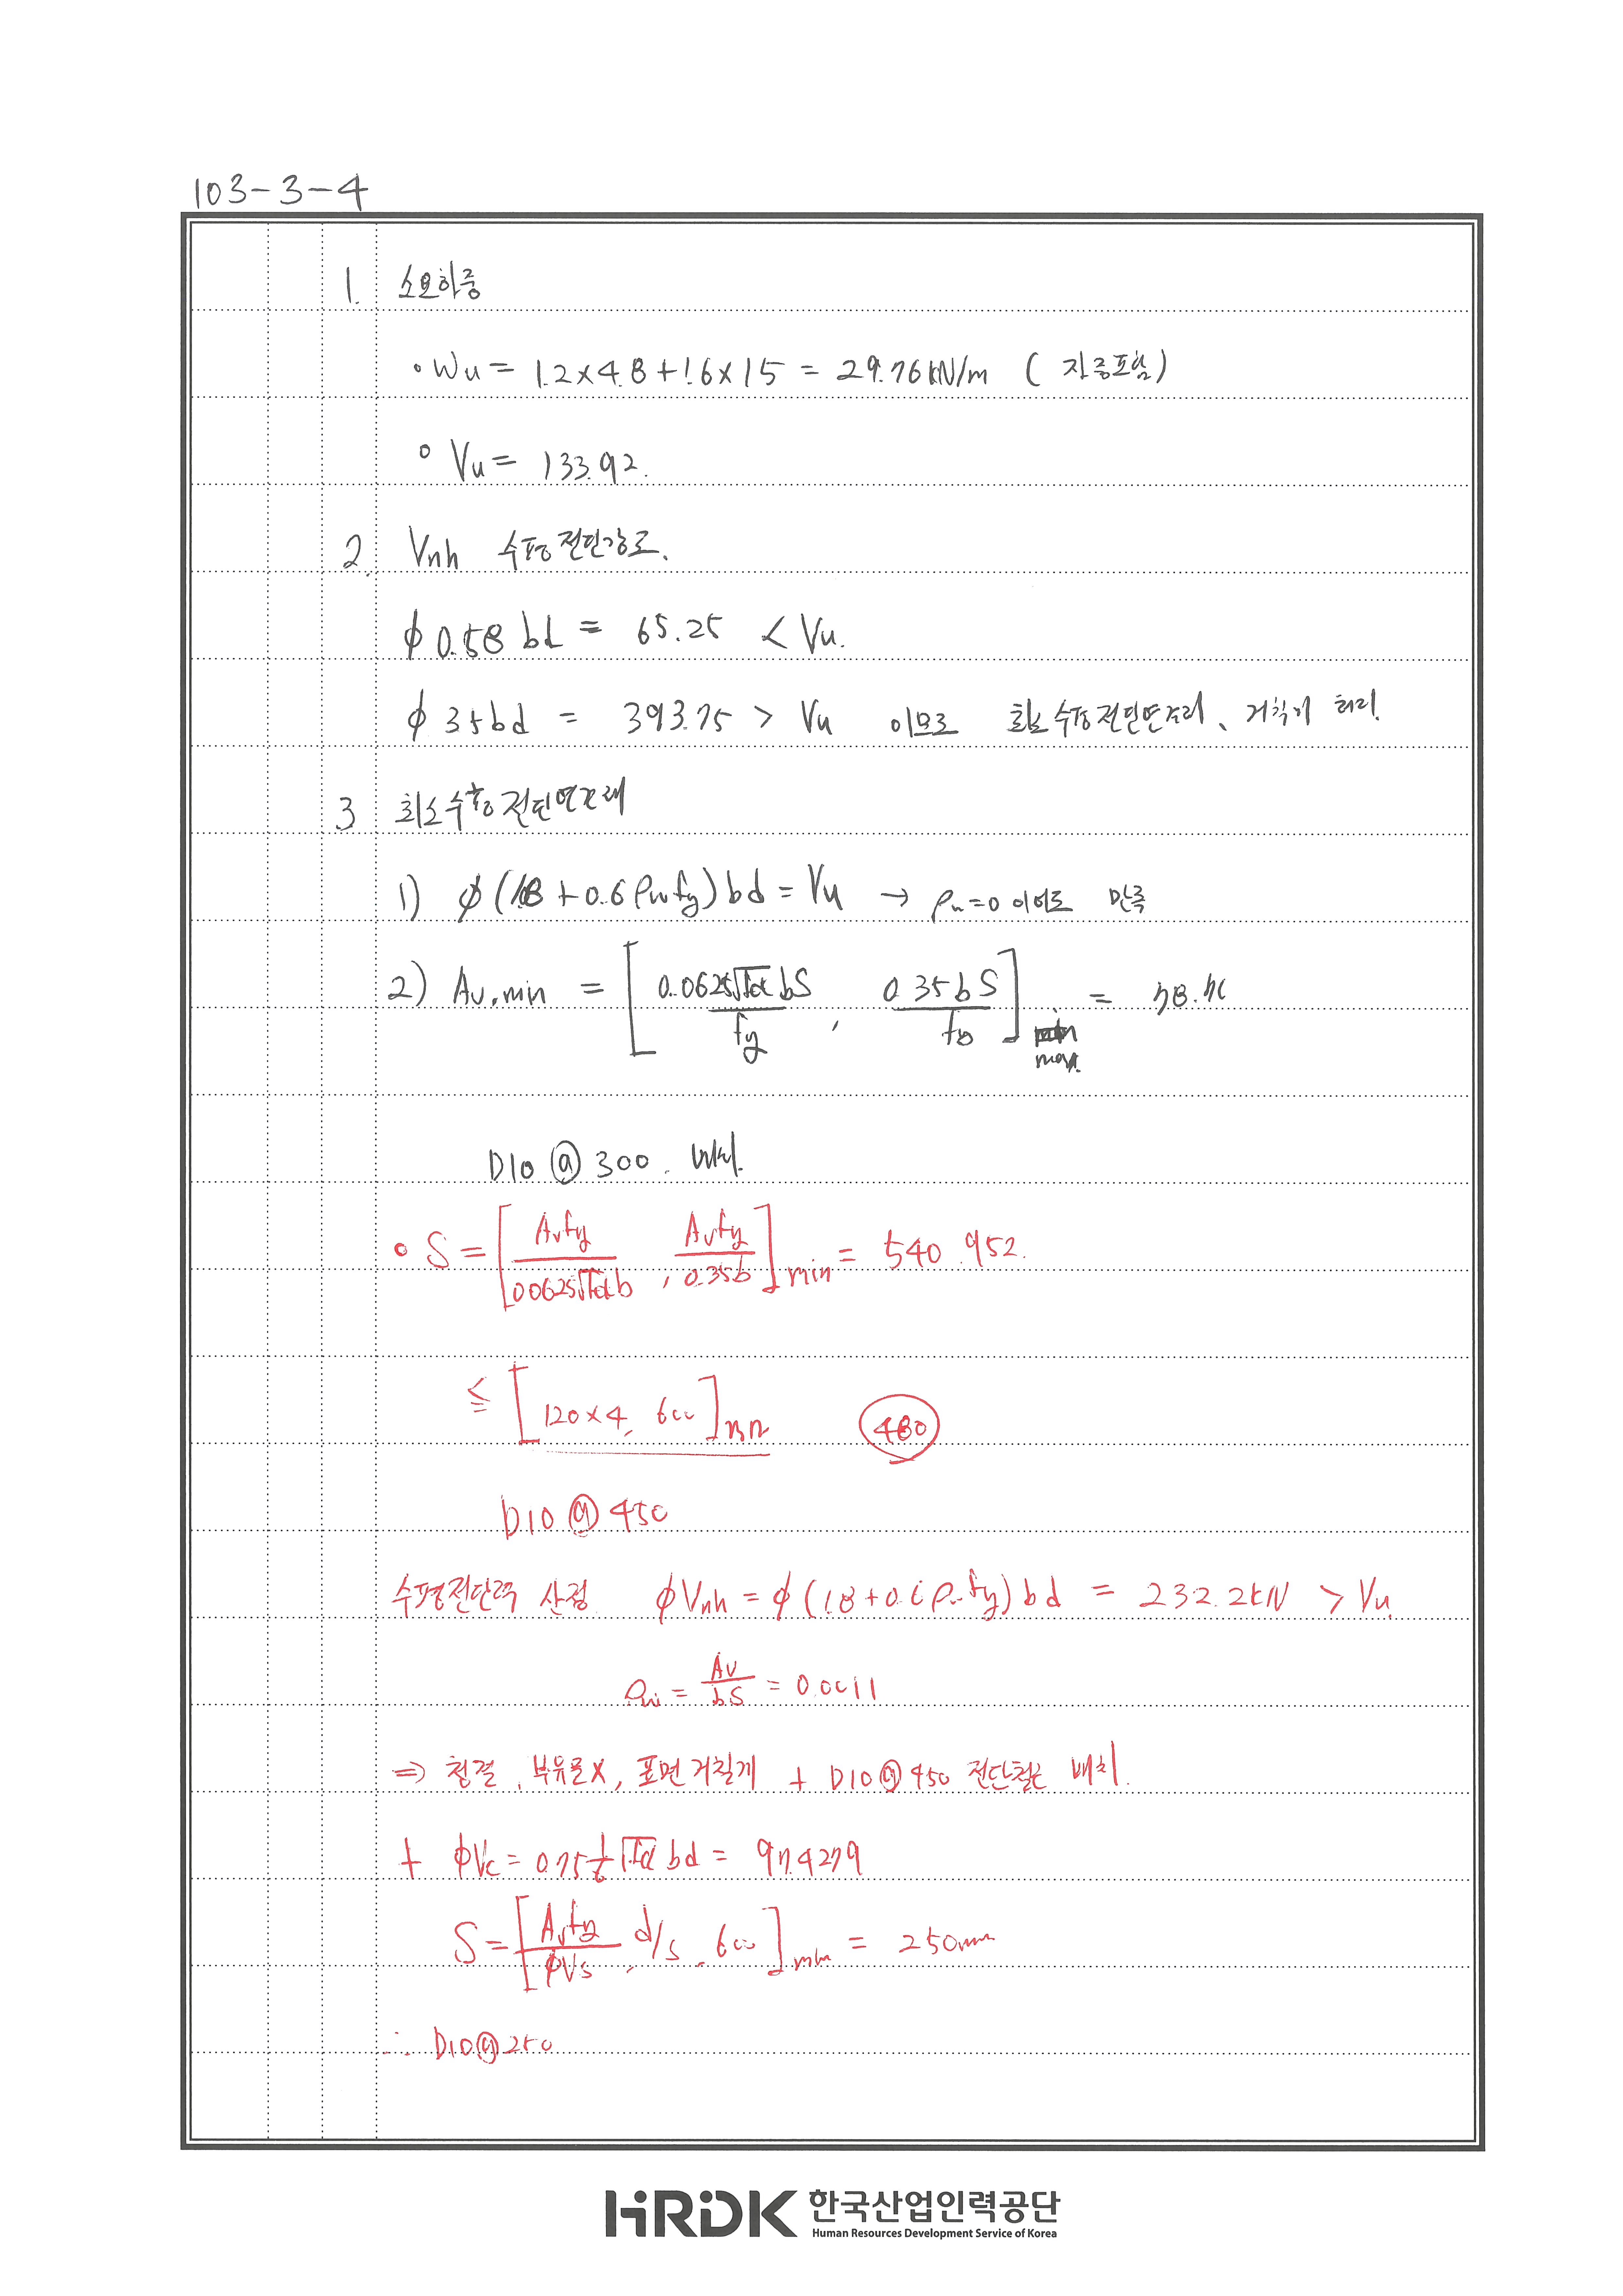 103-3-4
1. 소요하중
• Wu = 1.2×4.8+1.6×15 = 29.76kN/m ( 자중포함)
• Vu = 133.92.
2. Vnh 수평전단강도.
φ0.58 bd = 65.25 < Vu.
φ 3.5bd = 393.75 > Vu 이므로 최소수평전단연결재, 거칠기 처리.
3 최소수평전단연결재
1) φ(1.8+0.6ρwfy)bd = Vu → ρw=0 이어도 만족
2) Av,min = [ 0.0625√fck bS / fy , 0.35bS / fy ] max. =
D10 @ 300. 배치.
• S = [ Avfy / 0.0625√fck b , Avfy / 0.35b ] min = 540.952.
≤ [ 120×4, 600 ] min 480
D10 @ 450
수평전단력 산정 φVnh = φ(1.8+0.6ρwfy)bd = 232.2kN > Vu.
ρw = Av / bS = 0.0011
⇒ 청결, 부유물X, 표면거칠게 + D10@450 전단철근 배치.
+ φVc = 0.75 1/6 √fck bd = 97.4279
S = [ Avfy / φVs , d/2, 600 ] min = 250mm
∴ D10@250
HRDK 한국산업인력공단
Human Resources Development Service of Korea